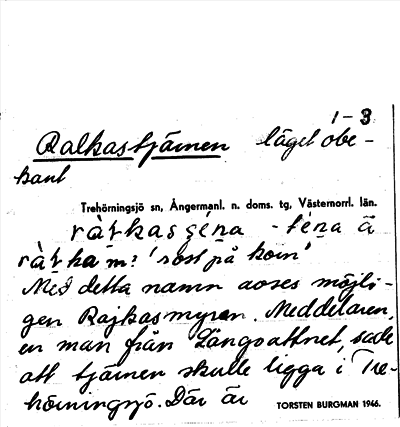 1-3
Ralkastjärnen läget obe-
kant
Trehörningsjö sn, Ångermanl. n. doms. tg, Västernorrl. län.
ràƚkasşę́na - tę́na ä
ràƚka m? 'rost på korn'
Med detta namn avses möjli-
gen Rajkasmyren. Meddelaren,
en man från Långvattnet, sade
att tjärnen skulle ligga i Tre-
hörningsjö. Där är
TORSTEN BURGMAN 1946.